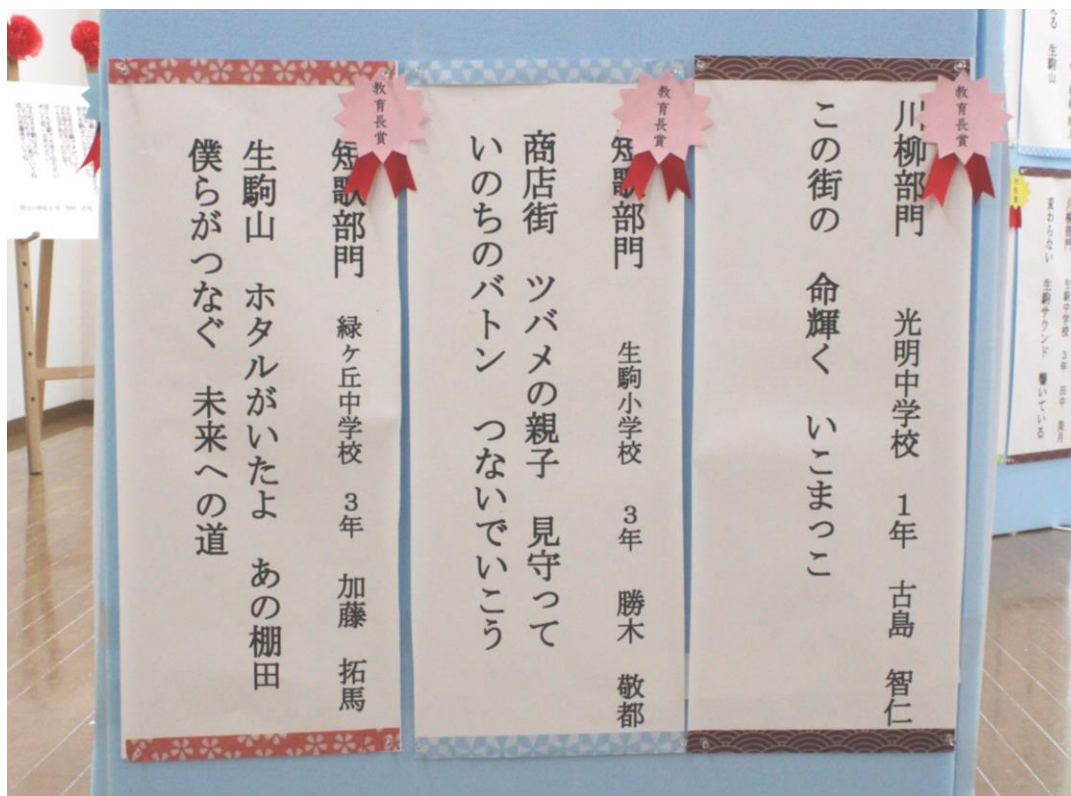 教育長賞
川柳部門　光明中学校　１年　古島　智仁
この街の　命輝く　いこまっこ
教育長賞
短歌部門　生駒小学校　３年　勝木　敬都
商店街　ツバメの親子　見守って
いのちのバトン　つないでいこう
教育長賞
短歌部門　緑ヶ丘中学校　３年　加藤　拓馬
生駒山　ホタルがいたよ　あの棚田
僕らがつなぐ　未来への道
える　生駒山
川柳部門　生駒中学校　３年　田中　美月
変わらない　生駒サウンド　響いている